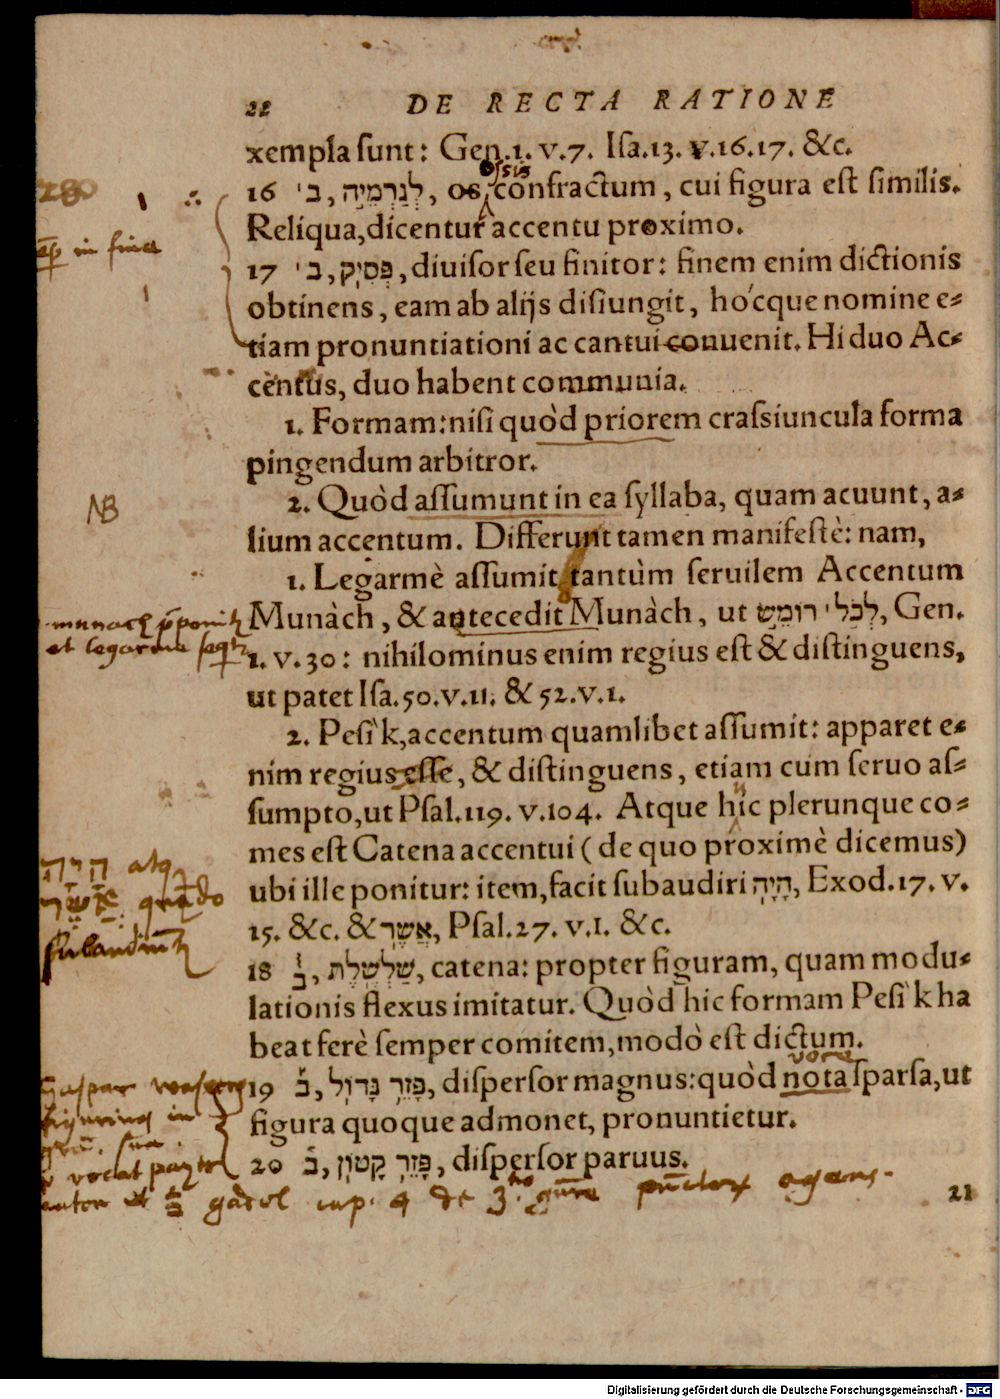 22 DE RECTA RATIONE
xempla sunt: Gen.1.v.7. Isa.13.v.16.17. &c.
16 ב׳, לְגַרְמֵיהּ, os confractum, cui figura est similis.
ossis
Reliqua, dicentur accentu proximo.
in fine
17 ב׳, פְּסִיק, diuisor seu finitor: finem enim dictionis
obtinens, eam ab alijs disiungit, hócque nomine e-
tiam pronuntiationi ac cantui conuenit. Hi duo Ac-
centus, duo habent communia.
1. Formam: nisi quòd priorem crassiuncula forma
pingendum arbitror.
NB
2. Quòd assumunt in ea syllaba, quam acuunt, a-
lium accentum. Differunt tamen manifestè: nam,
1. Legarmè assumit tantùm seruilem Accentum
munach
Munàch, & antecedit Munàch, ut לְכֹל׀ רוֹמֵשׂ, Gen.
et legarme
1. v.30: nihilominus enim regius est & distinguens,
ut patet Isa.50.v.11. & 52.v.1.
2. Pesìk, accentum quamlibet assumit: apparet e-
nim regius esse, & distinguens, etiam cum seruo as-
sumpto, ut Psal.119. v.104. Atque hic plerunque co-
mes est Catena accentui (de quo proximè dicemus)
הָיָה atq
ubi ille ponitur: item, facit subaudiri הָיָה, Exod.17. v.
אֲשֶׁר
15. &c. & אֲשֶׁר, Psal.27. v.1. &c.
18 ב, שַׁלְשֶׁלֶת, catena: propter figuram, quam modu-
lationis flexus imitatur. Quòd hic formam Pesìk ha
beat ferè semper comitem, modò est dictum.
voce
Gaspar
19 ב, פָּזֵר גָּדוֹל, dispersor magnus: quòd nota sparsa, ut
figura quoque admonet, pronuntietur.
vocat
20 ב, פָּזֵר קָטוֹן, dispersor paruus.
gadol cap. 4 de
21
Digitalisierung gefördert durch die Deutsche Forschungsgemeinschaft - DFG